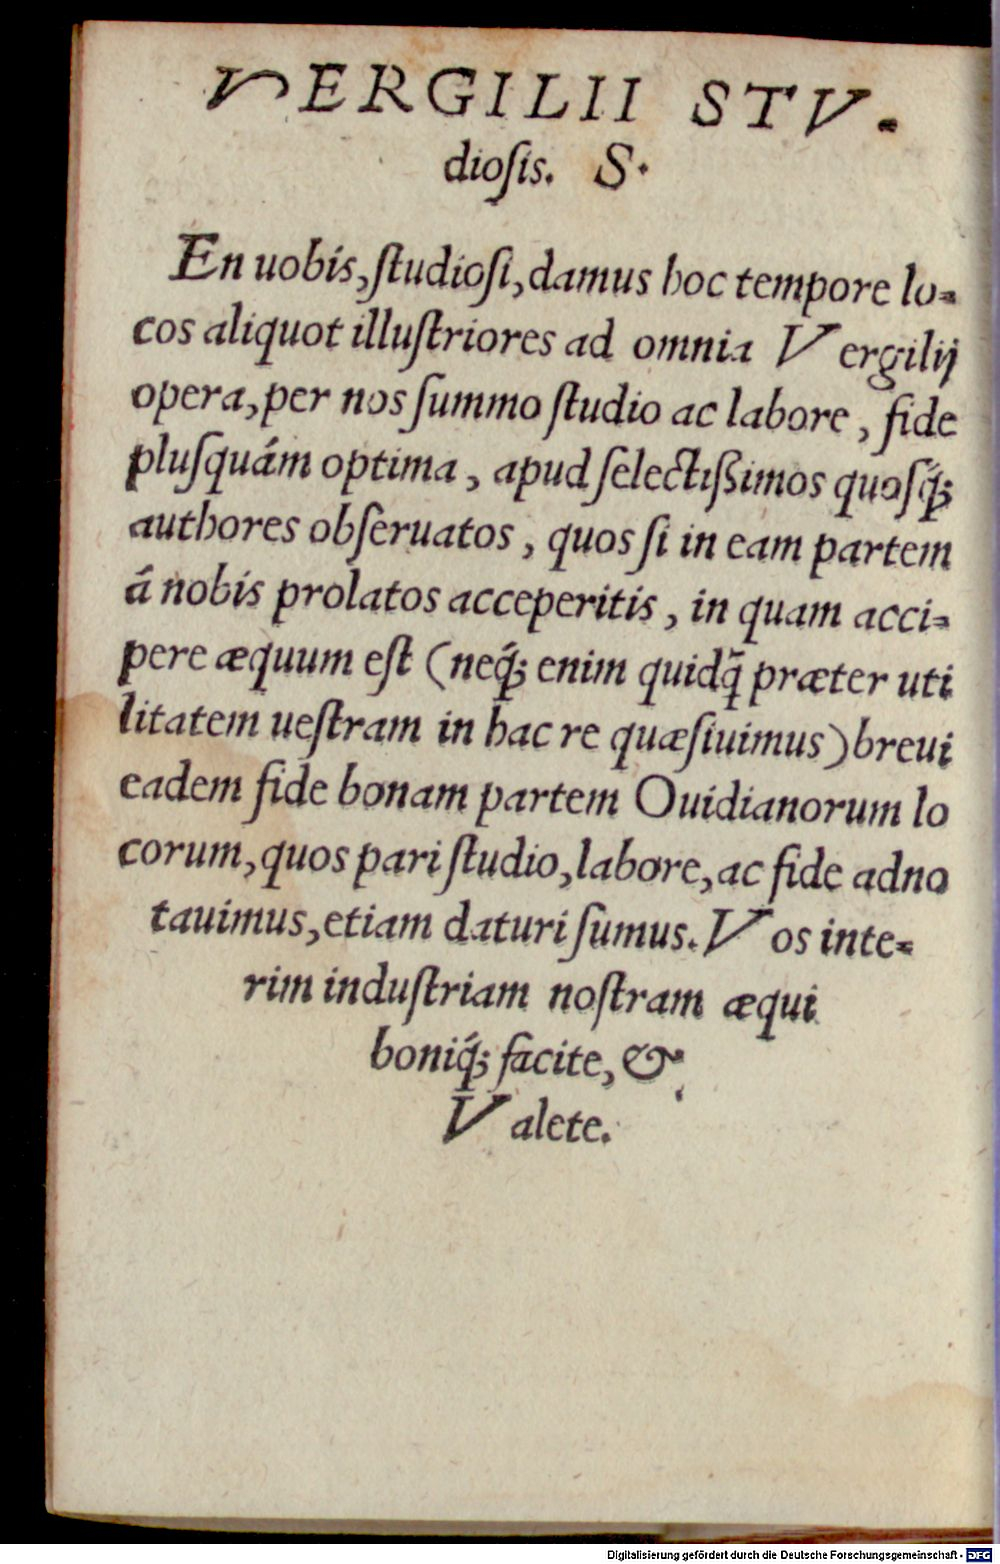 VERGILII STV-
diosis. S.
En uobis, studiosi, damus hoc tempore lo-
cos aliquot illustriores ad omnia Vergilij
opera, per nos summo studio ac labore, fide
plusquám optima, apud selectißimos quosq́;
authores obseruatos, quos si in eam partem
á nobis prolatos acceperitis, in quam acci-
pere æquum est (neq́; enim quidq̃ præter uti
litatem uestram in hac re quæsiuimus) breui
eadem fide bonam partem Ouidianorum lo
corum, quos pari studio, labore, ac fide adno
tauimus, etiam daturi sumus. Vos inte-
rim industriam nostram æqui
boniq́; facite, &
Valete.
Digitalisierung gefördert durch die Deutsche Forschungsgemeinschaft - DFG